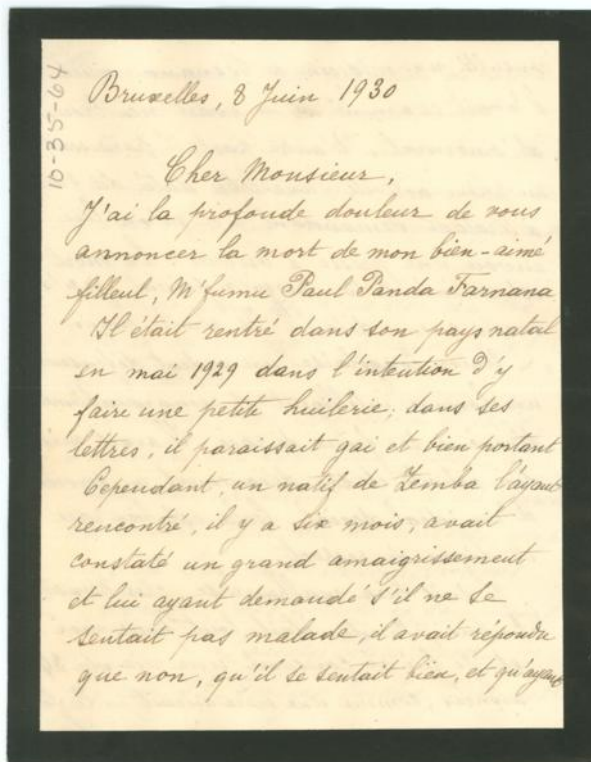 10-35-64
Bruxelles, 8 Juin 1930
Cher Monsieur,
J'ai la profonde douleur de vous
annoncer la mort de mon bien-aimé
filleul, M'fumu Paul Panda Farnana
Il était rentré dans son pays natal
en mai 1929 dans l'intention d'y
faire une petite huilerie; dans ses
lettres, il paraissait gai et bien portant
Cependant, un natif de Zemba l'ayant
rencontré, il y a six mois, avait
constaté un grand amaigrissement
et lui ayant demandé s'il ne se
sentait pas malade, il avait répondu
que non, qu'il se sentait bien, et qu'ayant